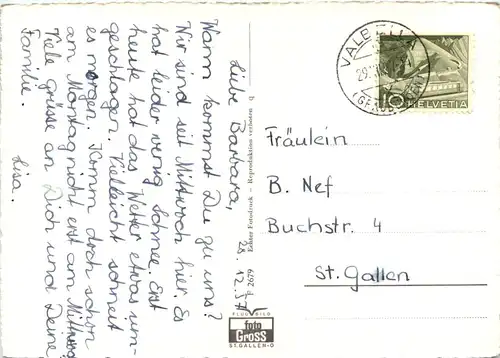 Liebe Barbara, 28.12.57
Wann kommst Du zu uns?
Wir sind seit Mittwoch hier. Es
hat leider wenig Schnee. Erst
heute hat das Wetter etwas um-
geschlagen. Vielleicht schneit
es morgen. Komm doch schon
am Montag nicht erst am Mittwoch
Viele grüsse an Dich und Deine
Familie.
Lisa.
Echter Fotodruck - Reproduktion verboten q
F 2679
FLUGBILD
foto
GROSS
ST. GALLEN-O
VALBELLA
HELVETIA
10
Fräulein
B. Nef
Buchstr. 4
St. Gallen